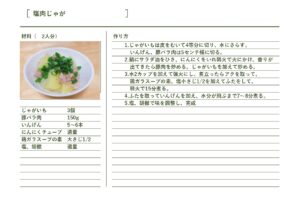 塩肉じゃが
材料（ 2人分）
じゃがいも 3個
豚バラ肉 150g
いんげん 5〜6本
にんにくチューブ 適量
鶏ガラスープの素 大さじ1/2
塩、胡椒 適量
作り方
1.じゃがいもは皮をむいて4等分に切り、水にさらす。
いんげん、豚バラ肉は5センチ幅に切る。
2.鍋にサラダ油をひき、にんにくをいれ弱火で火にかけ、香りが
出てきたら豚肉を炒める。じゃがいもを加えて炒める。
3.水2カップを加えて強火にし、煮立ったらアクを取って、
鶏ガラスープの素、塩小さじ1/2を加えてふたして
弱火で15分煮る。
4.ふたを取っていんげんを加え、水分が飛ぶまで7〜8分煮る。
5.塩、胡椒で味を調整し、完成